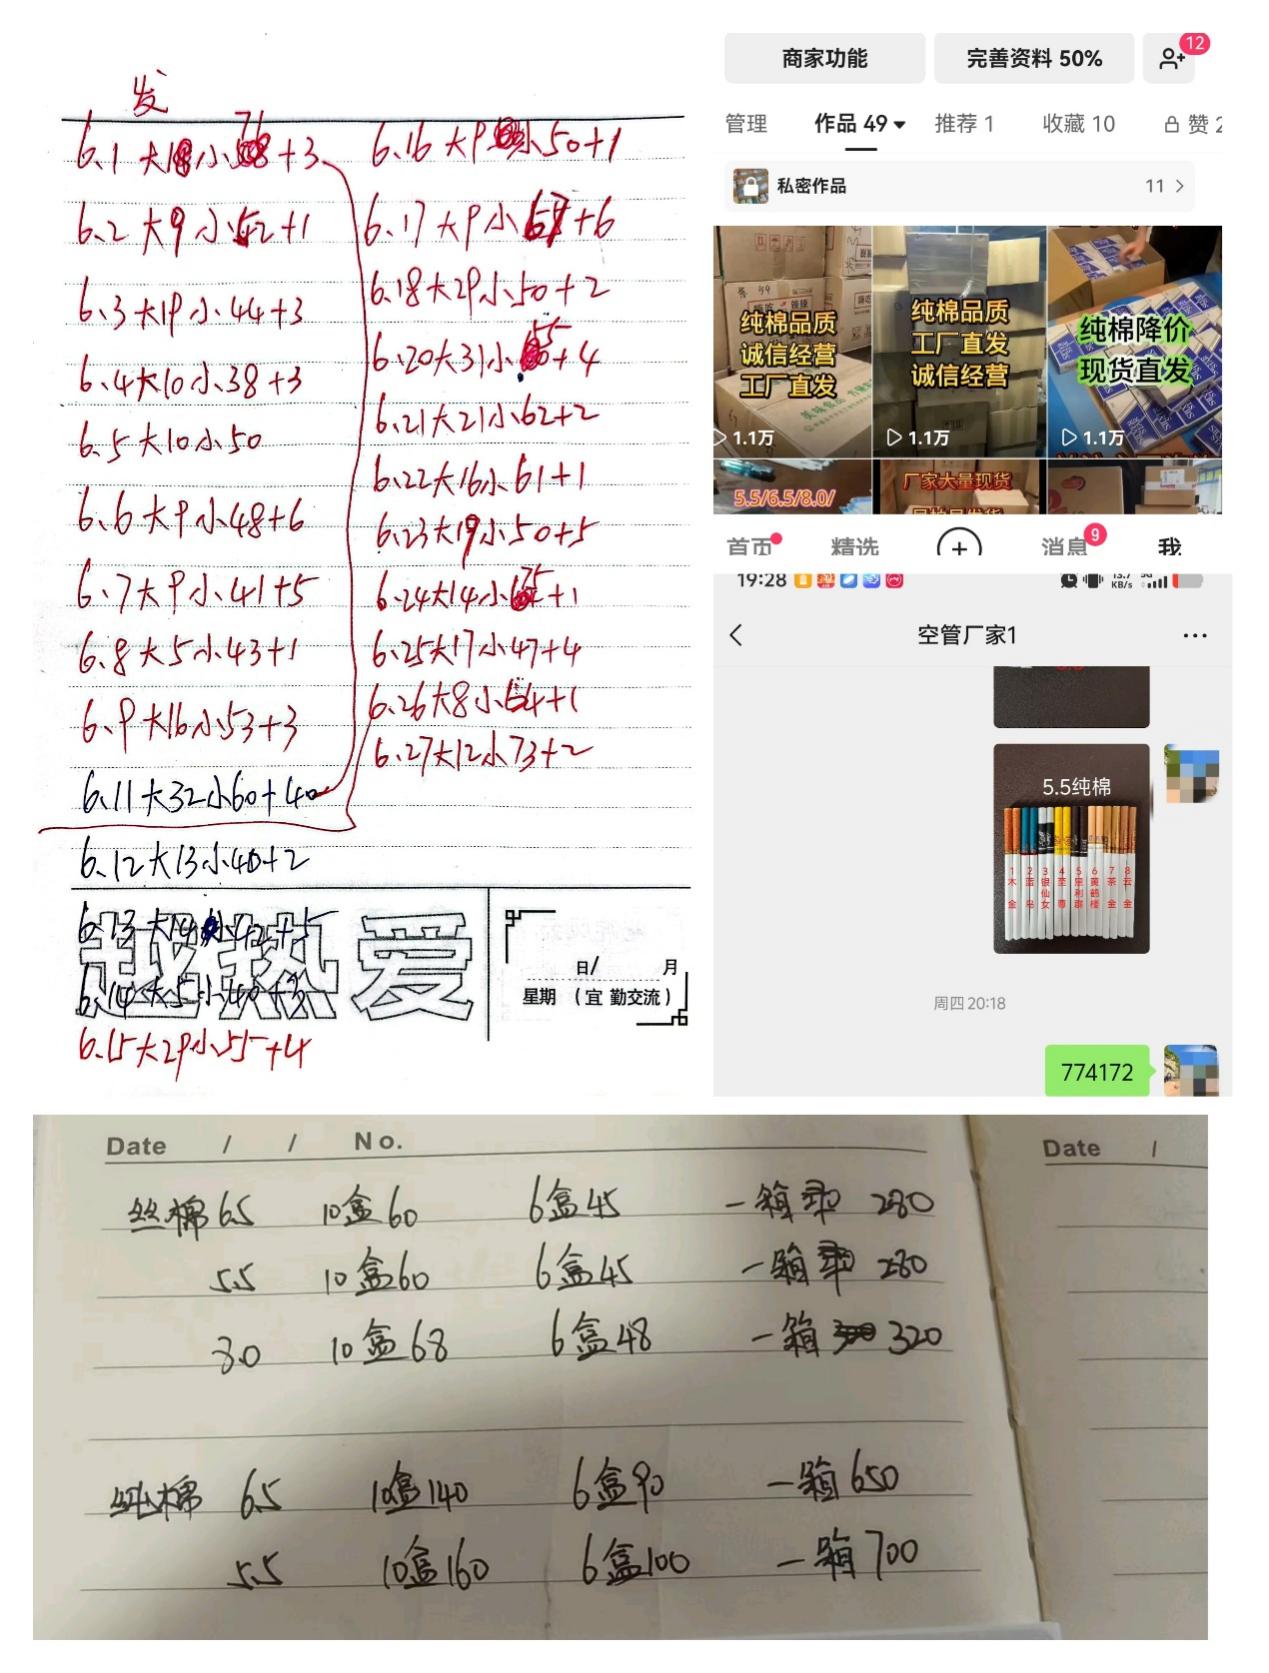 发
6.1大18小76+3
6.2大9小52+1
6.3大19小44+3
6.4大10小38+3
6.5大10小50
6.6大9小48+6
6.7大9小41+5
6.8大5小43+1
6.9大16小53+3
6.11大32小60+40
6.12大13小40+2
6.13大14小42+5
6.14大5小40+3
6.15大29小55+4
超热爱
日/ 月
星期（宜 勤交流）
6.16大9小50+1
6.17大9小67+6
6.18大29小50+2
6.20大31小55+4
6.21大21小62+2
6.22大16小61+1
6.23大19小50+5
6.24大14小75+1
6.25大17小47+4
6.26大8小54+1
6.27大12小73+2
商家功能 完善资料 50% 12
管理 作品 49 推荐 1 收藏 10 赞 2
私密作品 11
纯棉品质
诚信经营
工厂直发
1.1万
纯棉品质
工厂直发
诚信经营
1.1万
纯棉降价
现货直发
1.1万
5.5/6.5/8.0/
厂家大量现货
首页 精选 消息 9 我
19:28 KB/s
空管厂家1
5.5纯棉
1 2 3 4 5 6 7 8
木金 蓝 银仙女 至尊 黄鹤楼 茶金 云金
周四 20:18
774172
Date / / No.
丝棉 6.5 10盒60 6盒45 一箱 280
5.5 10盒60 6盒45 一箱 280
8.0 10盒68 6盒48 一箱 320
纯棉 6.5 10盒140 6盒90 一箱650
5.5 10盒160 6盒100 一箱700
Date /